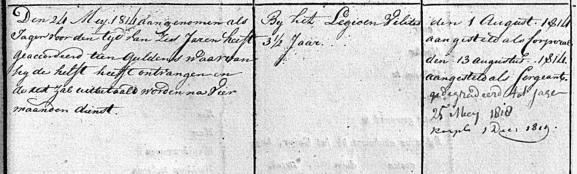 Den 24 Mey 1814 aangenomen als
Jager voor den tyd van zes Jaren heeft
geaccordeerd tien Guldens waar van
hy de helft heeft ontvangen en
de rest zal uitbetaald worden na vier
maanden dienst.
By het Legioen Velites
3½ Jaar.
den 1 August. 1814
aangesteld als Corporaal
den 13 augustus. 1814.
aangesteld als Sergeant.
gedegradeerd tot Jager
25 Mey 1818
1 Dec. 1819.